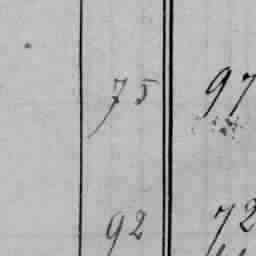 75 97
92 72